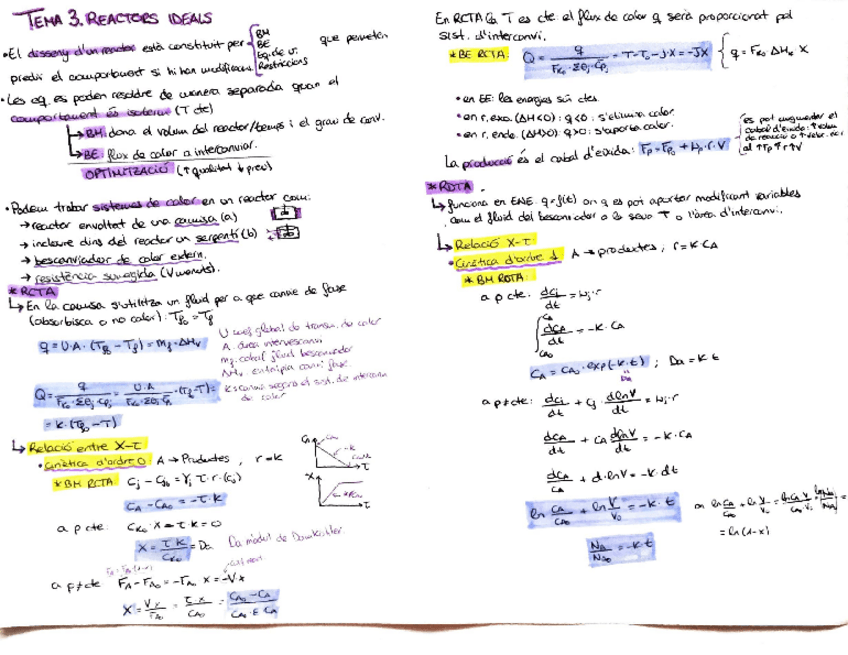 TEMA 3. REACTORS IDEALS
• El disseny d'un reactor està constituït per { BM BE Eq. de v. Restriccions que permeten
predir el comportament si hi han modificacions
• Les eq. es poden resoldre de manera separada quan el
comportament és isoterm (T cte)
↳ BM: dona el volum del reactor/temps i el grau de conv.
↳ BE: flux de calor a intercanviar.
OPTIMITZACIÓ (↑qualitat ↓preu)
• Podem trobar sistemes de calor en un reactor com:
→ reactor envoltat de una camisa (a)
→ incloure dins del reactor un serpentí (b)
→ bescanviador de calor extern.
→ resistència submergida (V menuts).
* RCTA
↳ En la camisa s'utilitza un fluid per a que canvie de fase
(absorbisca o no calor): Tf0 = Tf
q = U·A·(Tf0 - Tf) = mf·ΔHv
U coef global de transm. de calor
A. àrea intercanvi
mf. cabal fluid bescanviador
ΔHv. entalpia canvi fase
Q = q / FK0·Σθj·Cpj = U·A / FK0·Σθj·Cpj ·(Tf-T) =
= K·(Tf0 - T)
↳ Relació entre X-τ
• Cinètica d'ordre 0: A → Productes, r = k
* BM RCTA: Cj - Cj0 = γj τ·r·(cj)
CA - CA0 = -τ·k
a ρ cte: CK0·X - τ·k = 0
X = τ k / CK0 = Da
Da mòdul de Damköhler.
a ρ ≠ cte FA - FA0 = -FA0 X = -V·k
X = V k / FA0 = τ k / CA0 = CA0 - CA / CA0·E CA
En RCTA la T es cte. el flux de calor q serà proporcionat pel
sist. d'intercanvi.
* BE RCTA: Q = q / FK0·Σθj·Cpj = T - T0 - J·X = -JX { q = FK0 ΔHK X
• en EE: les energies són ctes.
• en r. exo. (ΔH<0): q<0: s'elimina calor.
• en r. endo. (ΔH>0): q>0: s'aporta calor.
La producció és el cabal d'eixida: Fp = Fp0 + Wp·r·V
es pot augmentar el
al ↑Fp ↑r ↑V
* RDTA.
↳ funciona en ENE. q = f(t) on q es pot aportar modificant variables
com el fluid del bescanviador o la seva T o l'àrea d'intercanvi.
↳ Relació X-τ
• Cinètica d'ordre 1 A → productes; r = k·CA
* BM RDTA:
a ρ cte: dcj/dt = wj·r
∫ dCA/dt = -k·CA
CA = CA0·exp(-k·t); Da = k t
a ρ ≠ cte: dcj/dt + cj·dlnV/dt = wj·r
dCA/dt + CA dlnV/dt = -k·CA
dCA/CA + d·lnV = -k·dt
ln CA/CA0 + ln V/V0 = -k·t
NA/NA0 = -k t
= ln(1-X)